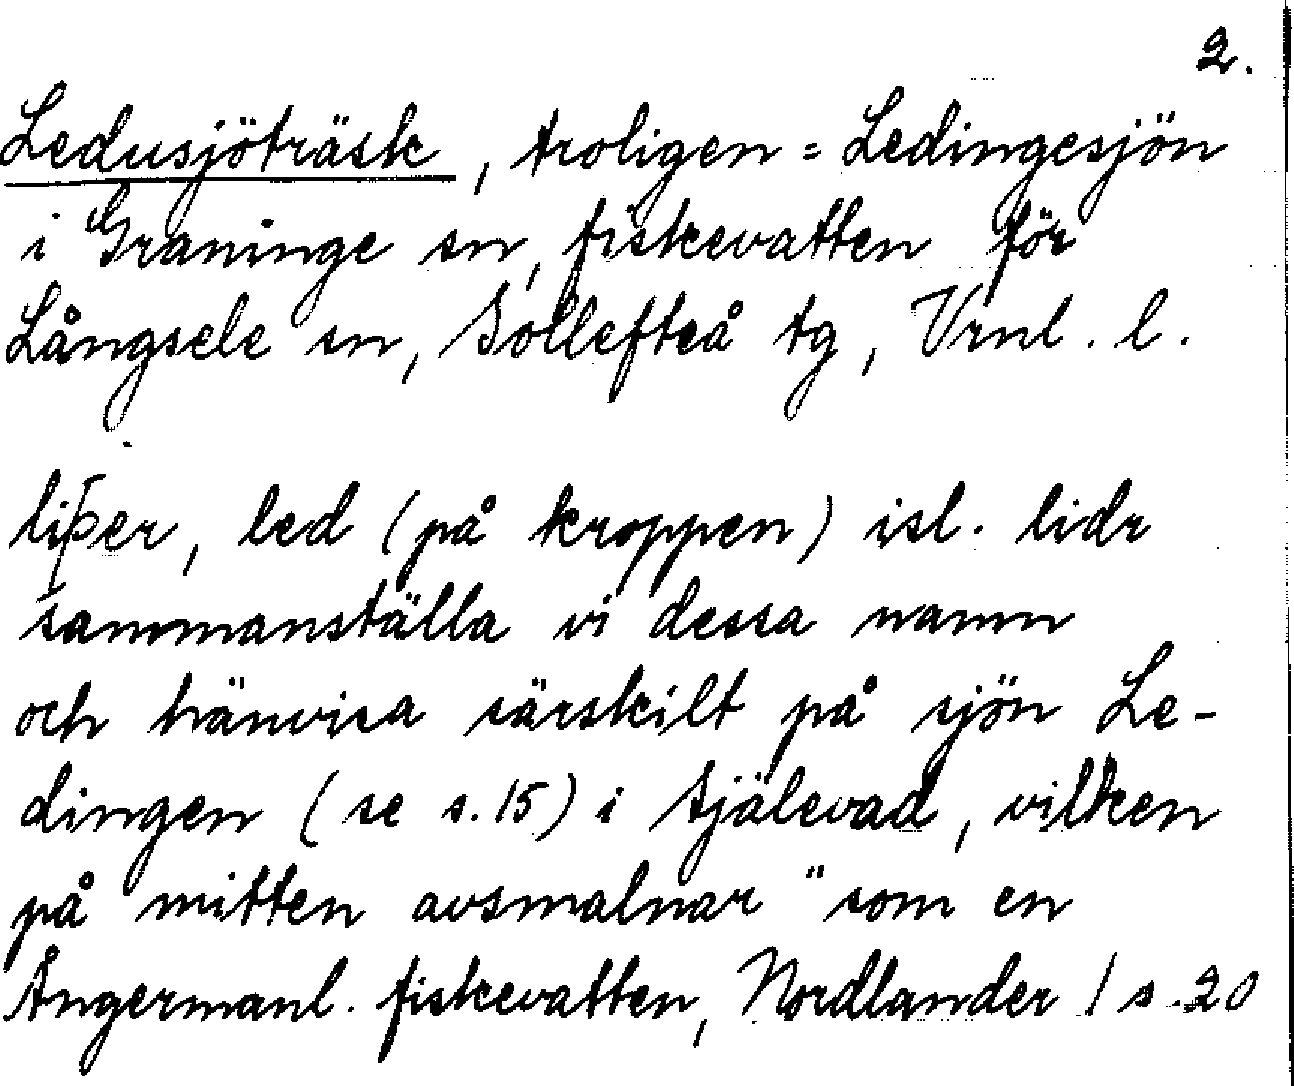 2.
Ledusjöträsk, troligen = Ledingesjön
i Graninge sn, fiskevatten för
Långsele sn, Sollefteå tg, Vrnl. l.
liþer, led (på kroppen) isl. lidr
sammanställa vi dessa namn
och hänvisa särskilt på sjön Le-
dingen (se s. 15) i Själevad, vilken
på mitten avsmalnar "som en
Ångermanl. fiskevatten, Nordlander 1 s. 20